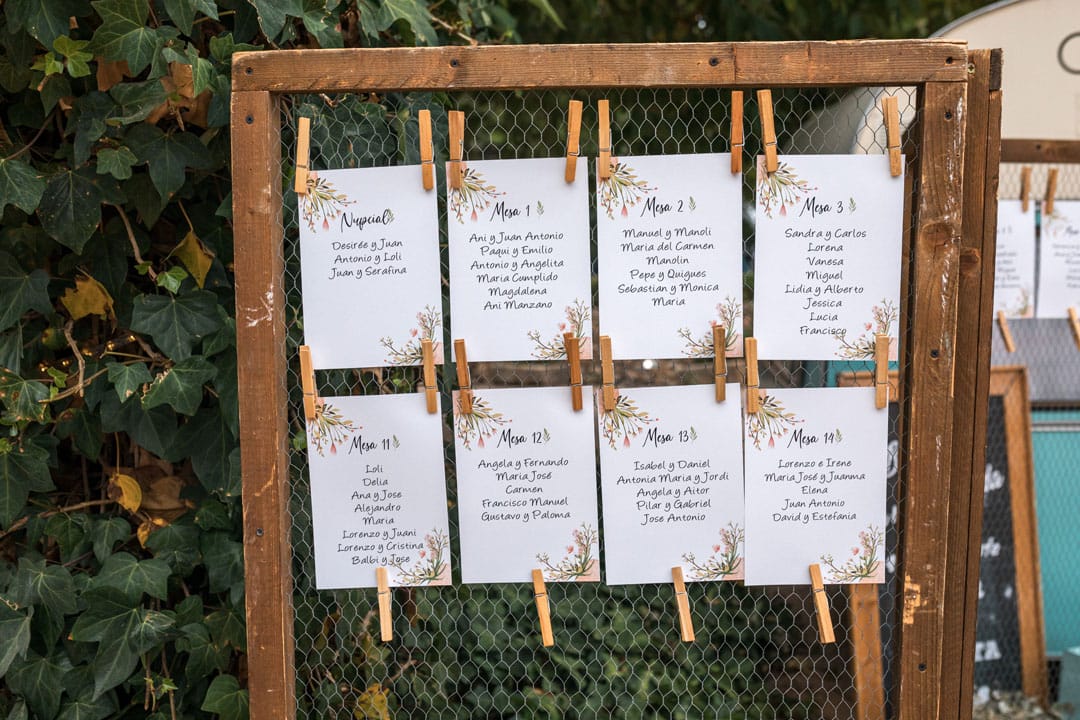 Nupcial
Desirée y Juan
Antonio y Loli
Juan y Serafina
Mesa 1
Ani y Juan Antonio
Paqui y Emilio
Antonio y Angelita
Maria Cumplido
Magdalena
Ani Manzano
Mesa 2
Manuel y Manoli
Maria del Carmen
Manolin
Pepe y Quigues
Sebastian y Monica
Maria
Mesa 3
Sandra y Carlos
Lorena
Vanesa
Miguel
Lidia y Alberto
Jessica
Lucia
Francisco
Mesa 11
Loli
Delia
Ana y Jose
Alejandro
Maria
Loren y Juani
Lorenzo y Cristina
Balbi y Jose
Mesa 12
Angela y Fernando
Maria José
Carmen
Francisco Manuel
Gustavo y Paloma
Mesa 13
Isabel y Daniel
Antonia Maria y Jordi
Angela y Aitor
Pilar y Gabriel
Jose Antonio
Mesa 14
Lorenzo e Irene
Maria José y Juanma
Elena
Juan Antonio
David y Estefania